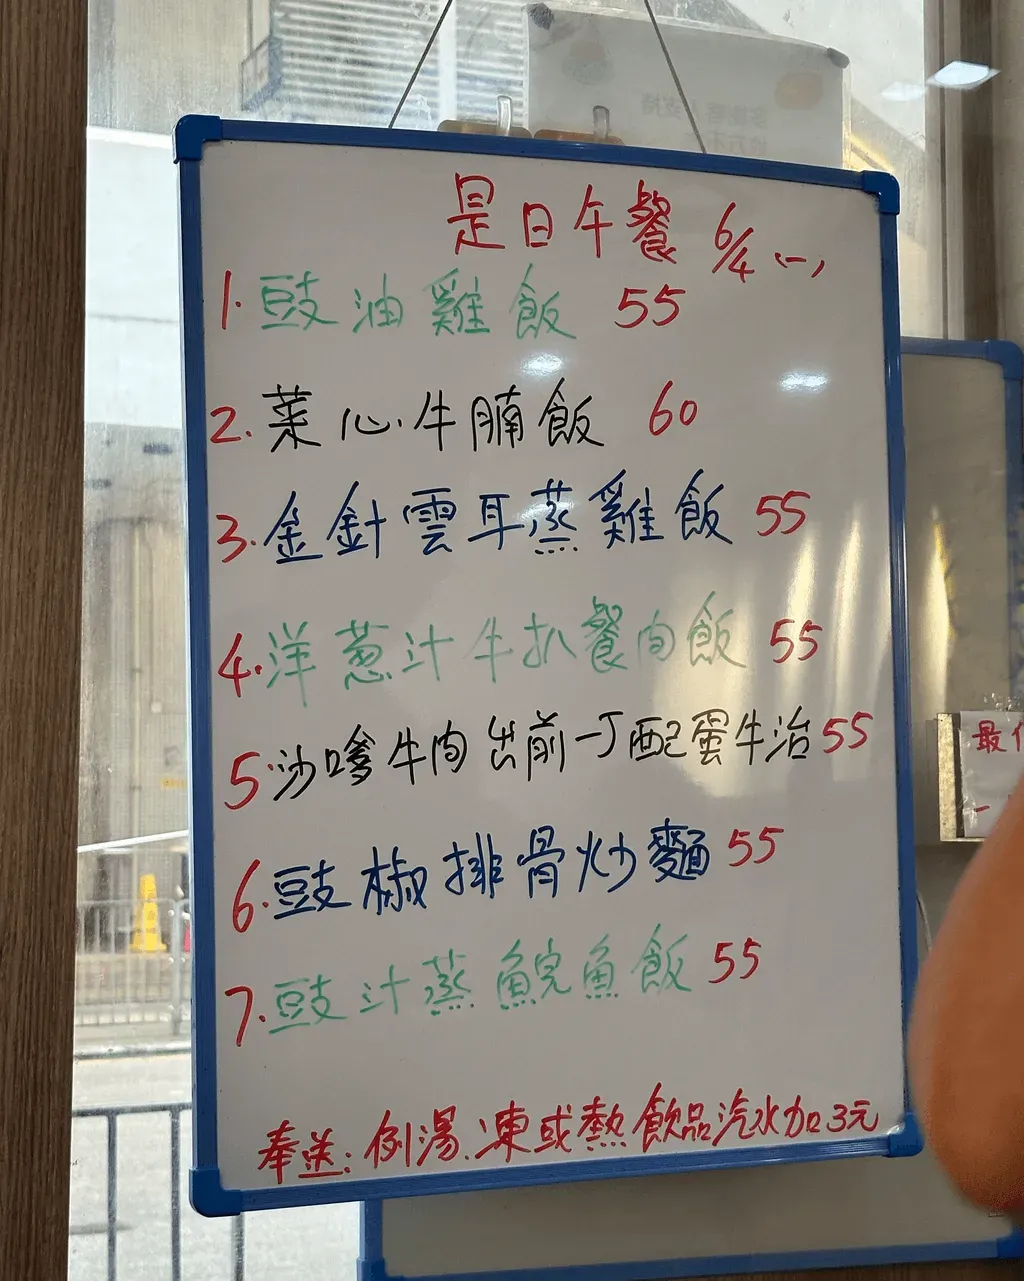 是日午餐 6/4 (一)
1. 豉油雞飯 55
2. 菜心牛腩飯 60
3. 金針雲耳蒸雞飯 55
4. 洋葱汁牛扒餐肉飯 55
5. 沙嗲牛肉出前一丁配蛋牛治 55
6. 豉椒排骨炒麵 55
7. 豉汁蒸鯇魚飯 55
奉送: 例湯.凍或熱飲品汽水加3元
最